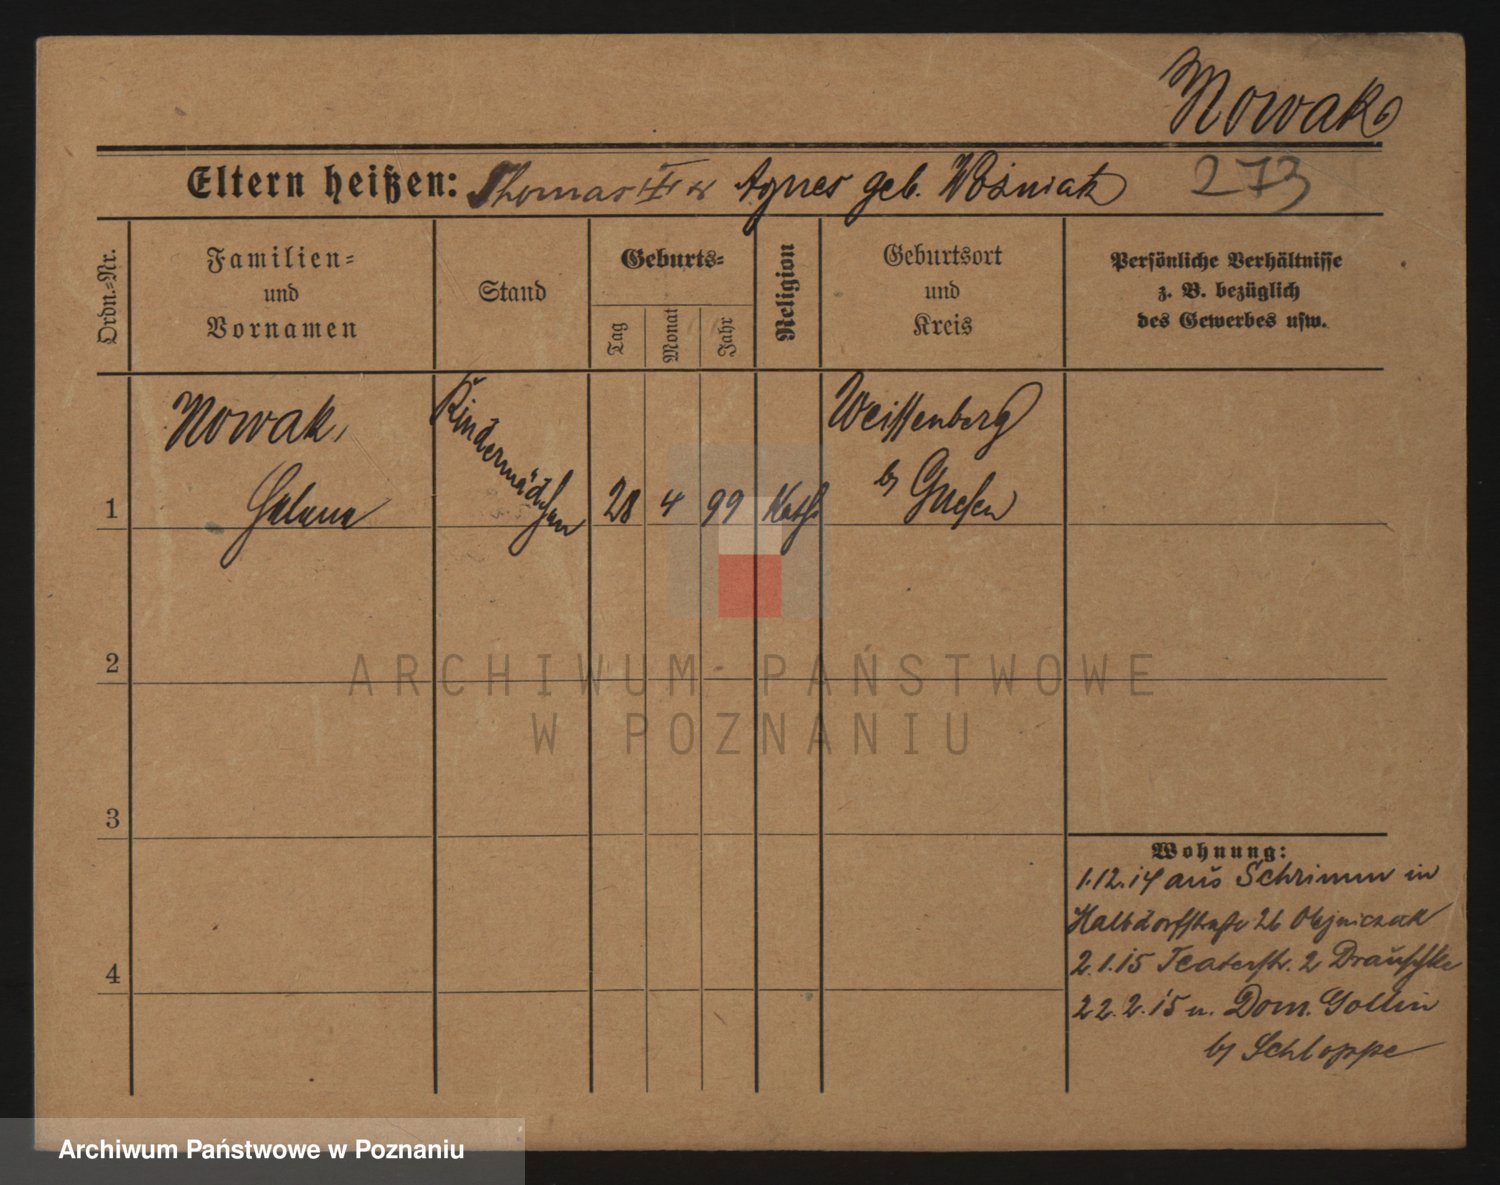 Nowak
Eltern heißen: Thomas u Agnes geb. Woźniak 273
Ordn.-Nr.
Familien-
und
Vornamen
Stand
Geburts-
Tag
Monat
Jahr
Religion
Geburtsort
und
Kreis
Persönliche Verhältnisse
z. B. bezüglich
des Gewerbes usw.
1
Nowak,
Helene
Kindermädchen
28 4 99 Kath.
Weissenberg
b/ Gnesen
2
3
4
Wohnung:
1.12.14 aus Schrimm in
Halbdorfstraße 26 Olejniczak
2.1.15 Teaterstr. 2 Drauschke
22.2.15 n. Dom. Gollin
b/ Schloppe
ARCHIWUM PAŃSTWOWE
W POZNANIU
Archiwum Państwowe w Poznaniu